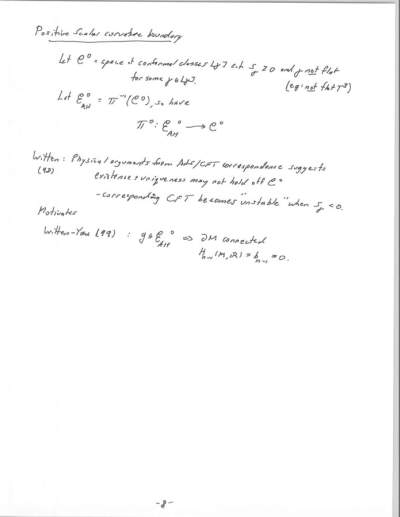 Positive Scalar curvature boundary
Let C⁰ = space of conformal classes [γ] s.t. S_γ ≥ 0 and γ not flat
for some γ ∈ [γ].
(eg. not flat T³)
Let E_AH⁰ = π⁻¹(C⁰), so have
π⁰: E_AH⁰ → C⁰
Witten: Physical arguments from AdS/CFT correspondence suggests
(98)
existence & uniqueness may not hold off C⁰
- corresponding CFT becomes "unstable" when S_γ < 0.
Motivates
Witten-Yau (99) : g ∈ E_AH⁰ ⇒ ∂M connected
H_{n-1}(M, ℝ) = b_{n-1} = 0.
-8-